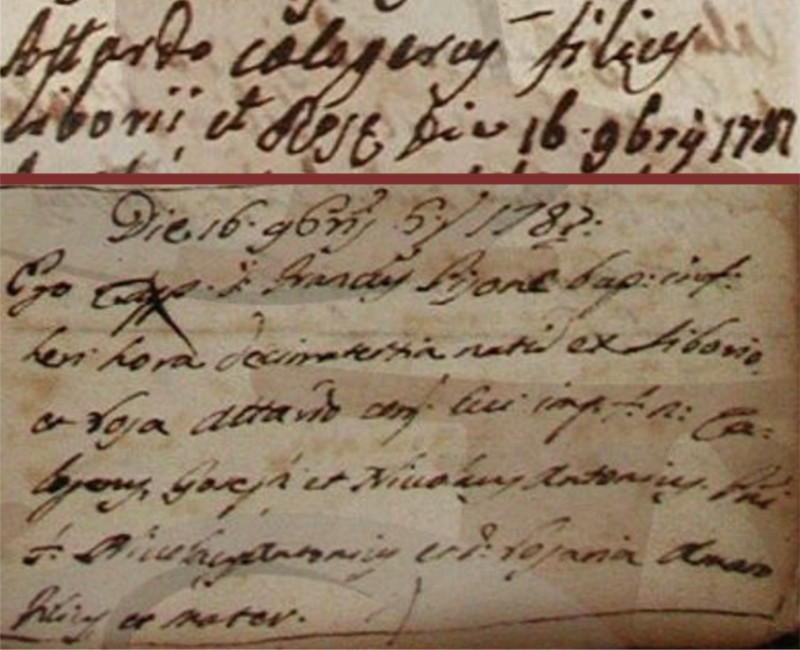 Attardo Calogerus filius
Liborii et Rose Die 16. 9bris 1787
Die 16. 9bris 1787:
Ego Capp. Pijone bap: inf:
heri hora decimatertia natu ex Liborio
et Rosa Attardo conj. cui imp. n: Ca:
logerus, Joseph et Nicolaus Antonius.
Nicolaus Antonius et Rosaria
filius et mater.